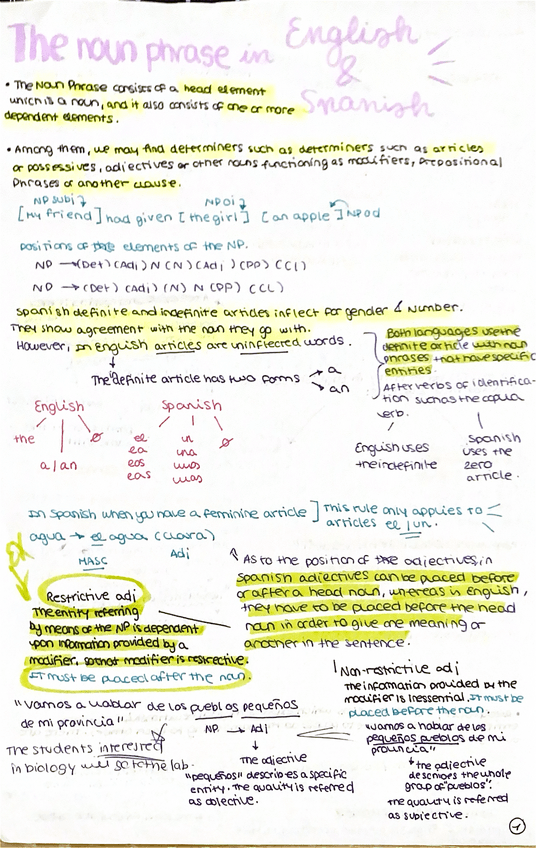 The noun phrase in English
&
Spanish
• The Noun Phrase consists of a head element
which is a noun, and it also consists of one or more
dependent elements.
• Among them, we may find determiners such as determiners such as articles
or possessives, adjectives or other nouns functioning as modifiers, prepositional
Phrases or another clause.
NP subj NP oi
[My friend] had given [the girl] [an apple] NP od
positions of the elements of the NP.
NP → (Det) (Adj) N (N) (Adj) (PP) (Cl)
NP → (Det) (Adj) (N) N (PP) (CL)
Spanish definite and indefinite articles inflect for gender & number.
They show agreement with the noun they go with.
However, in english articles are uninflected words.
The definite article has two forms → a
→ an
Both languages use the
definite article with noun
phrases that have specific
entities.
After verbs of identifica-
tion such as the copua
verb.
English uses
the indefinite
Spanish
uses the
zero
article.
English
the
a/an
ø
Spanish
el
ea
eos
eas
un
una
unos
unas
ø
In Spanish when you have a feminine article ] This rule only applies to
articles el/un.
agua → el agua (clara)
MASC Adj
EX
Restrictive adj
The entity referring
by means of the NP is dependent
upon information provided by a
modifier, so that modifier is restrictive.
It must be placed after the noun.
As to the position of the adjectives, in
Spanish adjectives can be placed before
or after a head noun, whereas in English,
they have to be placed before the head
noun in order to give one meaning or
another in the sentence.
Non-restrictive adj
The information provided by the
modifier is inessential. It must be
placed before the noun.
"Vamos a hablar de los pueblos pequeños
de mi provincia"
NP → Adj
The adjective
"pequeños" describes a specific
entity. The quality is referred
as objective.
The students interested
in biology will go to the lab.
"Vamos a hablar de los
pequeños pueblos de mi
provincia"
the adjective
describes the whole
group of "pueblos".
The quality is referred
as subjective.
1